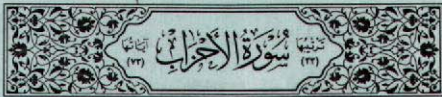 تَرْتِيبُهَا سُورَةُ الأَحْزَابِ آيَاتُهَا
(٣٣) (٧٣)